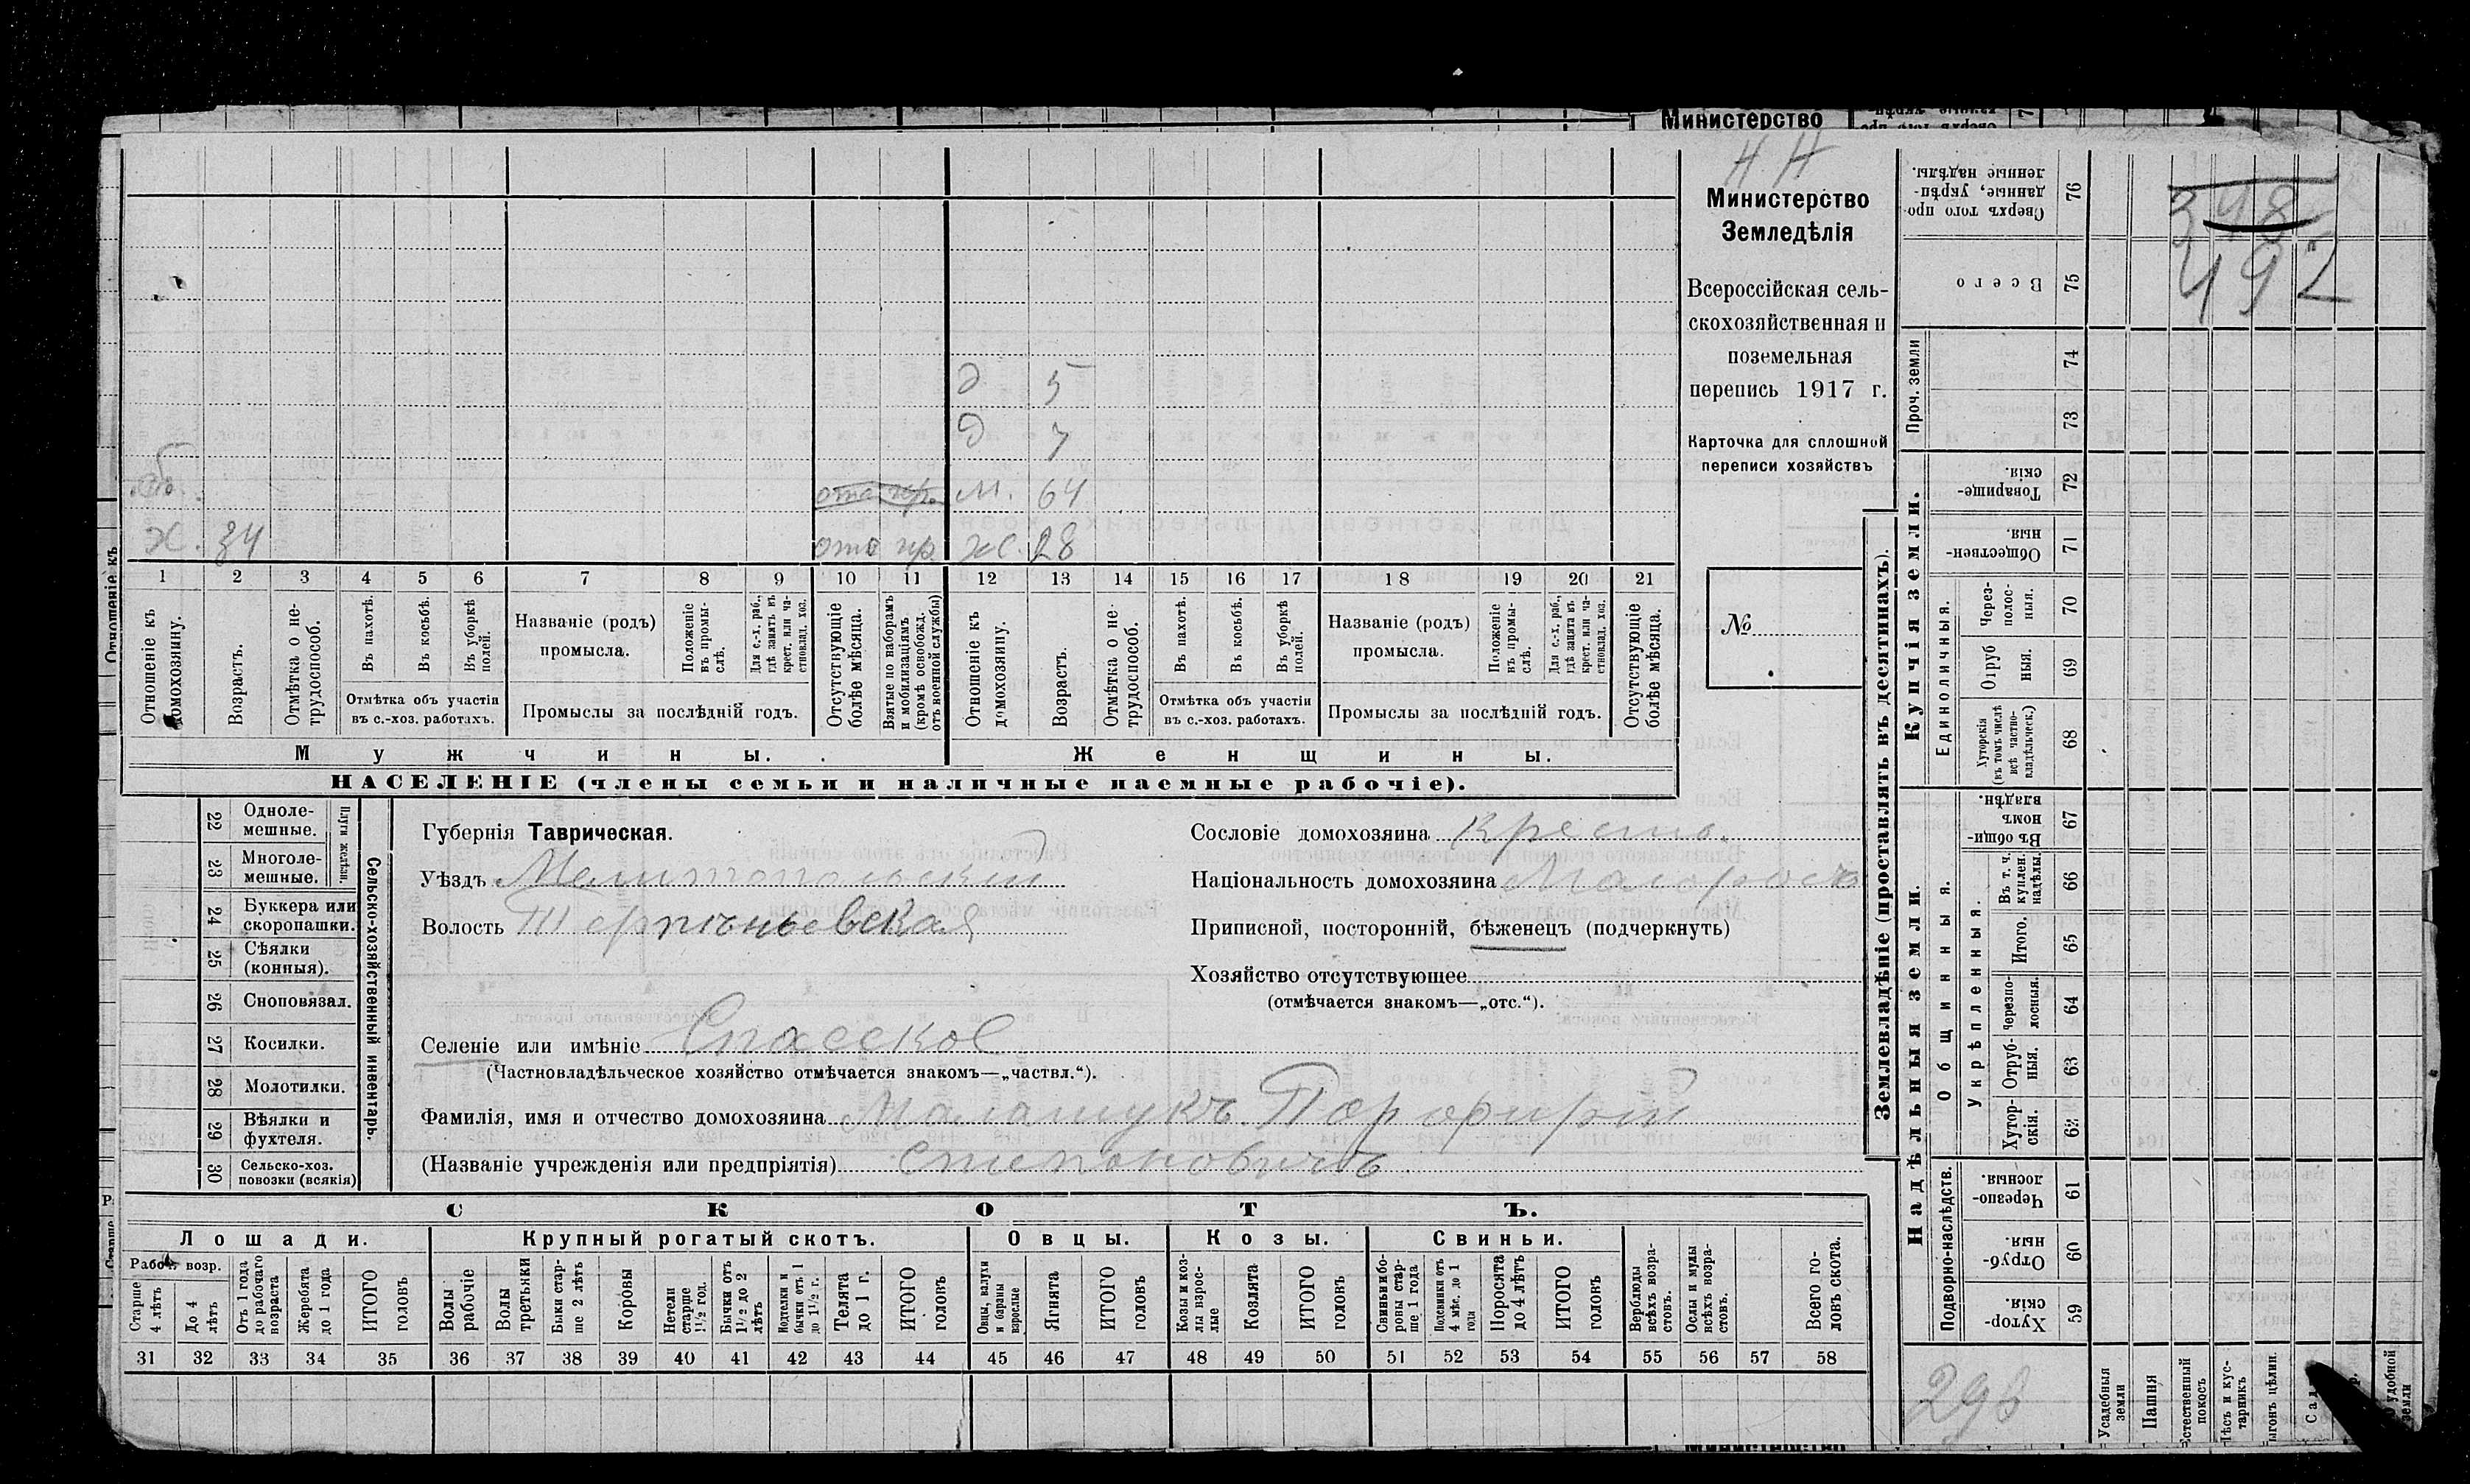 Министерство
Н. Н
Министерство
Земледѣлія
Всероссійская сель-
скохозяйственная и
поземельная
перепись 1917 г.
Карточка для сплошной
переписи хозяйствъ
№
д 5
д 7
отс пр. м. 64
х. 34 отс пр ж. 28
1 2 3 4 5 6 7 8 9 10 11 12 13 14 15 16 17 18 19 20 21
Отношеніе къ домохозяину.
Возрастъ.
Отмѣтка о не-трудоспособ.
Въ пахотѣ.
Въ косьбѣ.
Въ уборкѣ полей.
Отмѣтка объ участіи
въ с.-хоз. работахъ.
Названіе (родъ)
промысла.
Положеніе въ промы-слѣ.
Для с.-х. раб., гдѣ занятъ въ крест. или ча-стновлад. хоз.
Промыслы за послѣдній годъ.
Отсутствующіе болѣе мѣсяца.
Взятые по наборамъ и мобилизаціямъ (кромѣ освобожд. отъ военной службы)
Отношеніе къ домохозяину.
Возрастъ.
Отмѣтка о не-трудоспособ.
Въ пахотѣ.
Въ косьбѣ.
Въ уборкѣ полей.
Отмѣтка объ участіи
въ с.-хоз. работахъ.
Названіе (родъ)
промысла.
Положеніе въ промы-слѣ.
Для с.-х. раб., гдѣ занята въ крест. или ча-стновлад. хоз.
Промыслы за послѣдній годъ.
Отсутствующіе болѣе мѣсяца.
Мужчины.
Женщины.
НАСЕЛЕНІЕ (члены семьи и наличные наемные рабочіе).
22 Одноле-мешные.
23 Многоле-мешные.
Плуги желѣзн.
24 Буккера или скоропашки.
25 Сѣялки (конныя).
26 Сноповязал.
27 Косилки.
28 Молотилки.
29 Вѣялки и фухтеля.
30 Сельско-хоз. повозки (всякія)
Сельско-хозяйственный инвентарь.
Губернія Таврическая.
Уѣздъ Мелитопольский
Волость Терпѣньевская
Селеніе или имѣніе Спасское
(Частновладѣльческое хозяйство отмѣчается знакомъ—„частвл.“).
Фамилія, имя и отчество домохозяина Малашукъ Порфирій
(Названіе учрежденія или предпріятія) Степановичъ
Сословіе домохозяина Крестъ.
Національность домохозяина Малороссъ
Приписной, посторонній, бѣженецъ (подчеркнуть)
Хозяйство отсутствующее
(отмѣчается знакомъ—„отс.“).
СКОТЪ.
Лошади.
Крупный рогатый скотъ.
Овцы.
Козы.
Свиньи.
Рабоч. возр.
Старше 4 лѣтъ
До 4 лѣтъ
Отъ 1 года до рабочаго возраста
Жеребята до 1 года
ИТОГО головъ
Волы рабочіе
Волы третьяки
Быки стар-ше 2 лѣтъ
Коровы
Нетели старше 1½ год.
Бычки отъ 1½ до 2 лѣтъ
Нетелки и бычки отъ 1 до 1½ г.
Телята до 1 г.
ИТОГО головъ
Овцы, валухи и бараны взрослые
Ягнята
ИТОГО головъ
Козы и коз-лы взрос-лые
Козлята
ИТОГО головъ
Свиньи и бо-ровы стар-ше 1 года
Подсвинки отъ 4 мѣс. до 1 года
Поросята до 4 лѣтъ
ИТОГО головъ
Верблюды всѣхъ возра-стовъ.
Ослы и мулы всѣхъ возра-стовъ.
Всего го-ловъ скота.
31 32 33 34 35 36 37 38 39 40 41 42 43 44 45 46 47 48 49 50 51 52 53 54 55 56 57 58
Землевладѣніе (проставлять въ десятинахъ).
Купчія земли.
Надѣльныя земли.
Сверхъ того про-данные, укрѣп-ленные надѣлы. 76
Всего 75
Проч. земли 74
73
Товарище-скія. 72
Обществен-ныя. 71
Единоличныя.
Через-полос-ныя. 70
Отруб-ныя. 69
Хуторскія (въ томъ числѣ всѣ частно-владѣльческ.) 68
Въ общи-номъ владѣн. 67
Общинныя.
Укрѣпленныя.
Въ т. ч. куплен. надѣлы. 66
Итого. 65
Черезпо-лосныя. 64
Отруб-ныя. 63
Хутор-скія. 62
Подворно-наслѣдств.
Черезпо-лосныя. 61
Отруб-ныя. 60
Хутор-скія. 59
Усадебныя земли
Пашня
Естественный покосъ
Лѣсъ и кус-тарникъ
Выгонъ цѣлин.
348
492
293